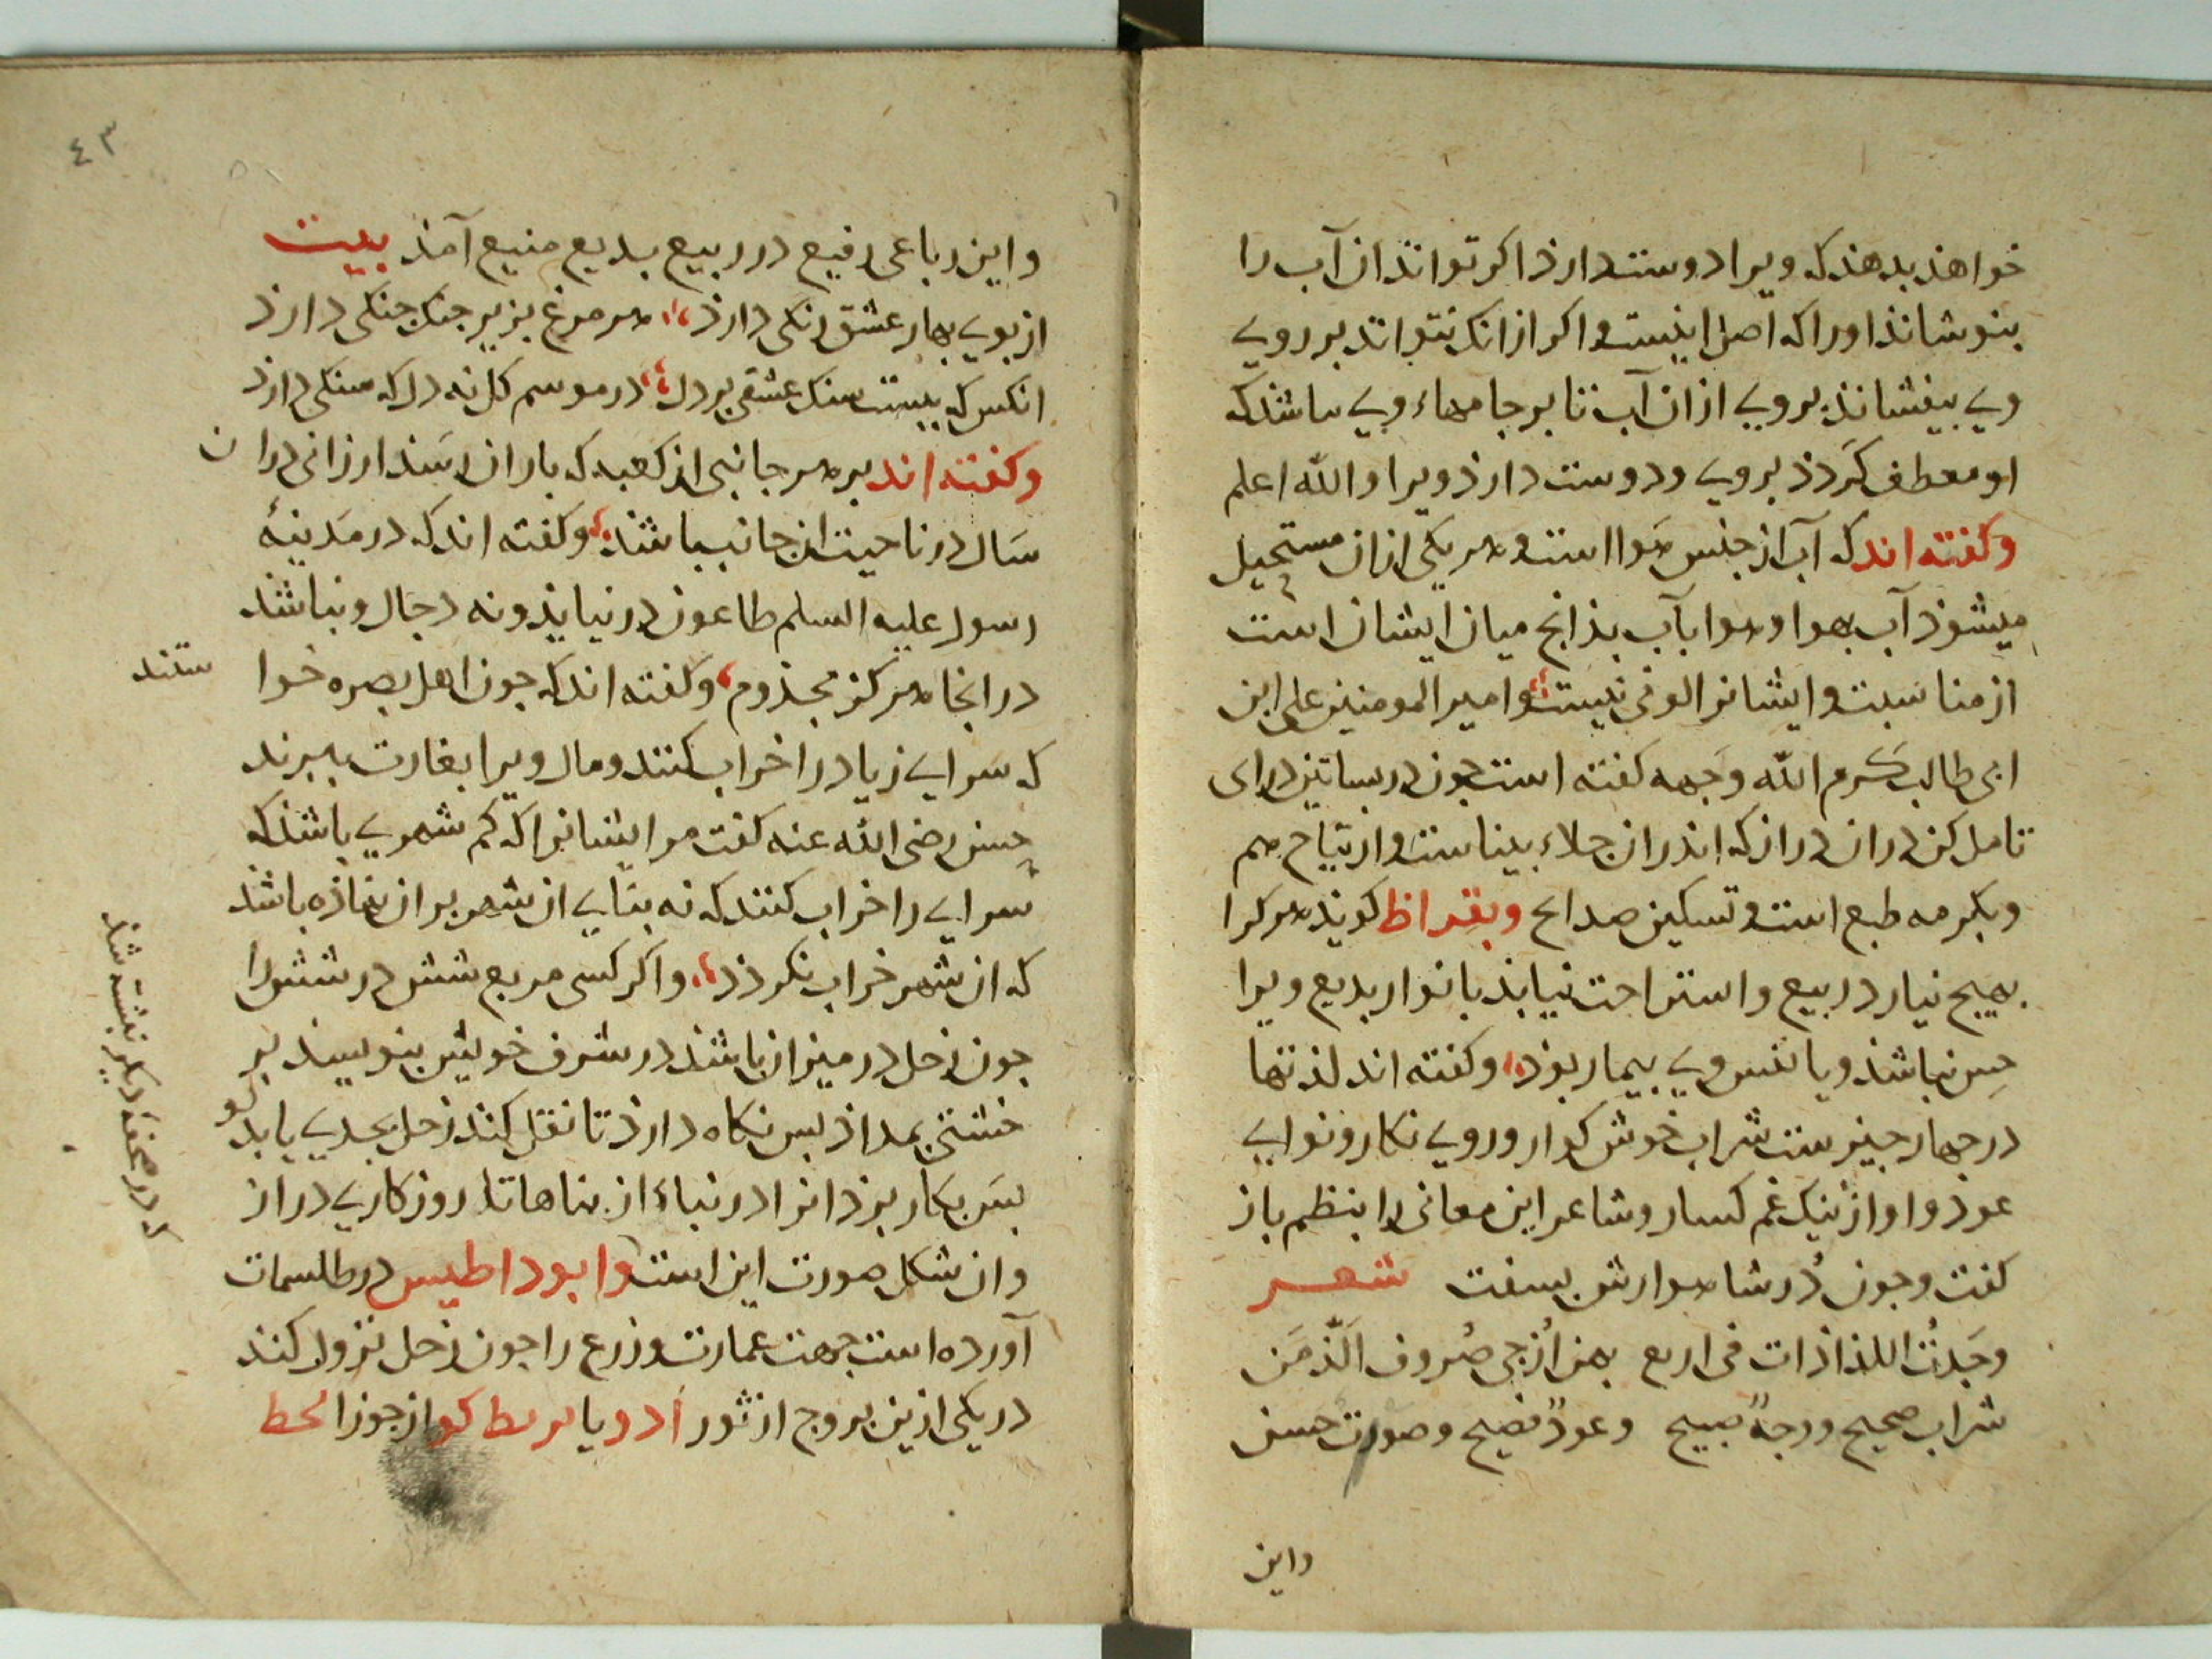 خواهذ بدهذ که ویرا دوست دارذ اکر تواند از ان آب را
بنوشاند اورا که اصل اینست واکر از انک نتواند بر روی
وی بیفشاند بروی از ان آب تا بر جامهاء وی باشذ که
او معطف کردذ بروی ودوست دارذ ویرا والله اعلم
وکفته اند که آب از جنس هوا است و هر یکی از ان مستحیل
میشوذ آب بهوا وهوا بآب بذانج میان ایشان است
از مناسبت وایشانرا لوفی نیست وامیر المومنین علی ابن
ابی طالب کرم الله وجهه کفته است جون در بساتین درای
تامل کن دران دراز که اندران جلاء بیناست وارتیاح هم
وبکرمه طبع است وتسکین صداع وبقراظ کویند هر کرا
بهیج نیارد ربیع واستراحت نیابذ بانوار بدیع ویرا
حس نباشذ ویا نفس وی بیمار بوذ وکفته اند لذتها
در جهار جیزست شراب خوش کوار وروی نکار ونوای
عوذ واواز نیک غم کسار وشاعر این معانی را بنظم باز
کفت وجون دُر شاهوارش بسفت شعر
وجَدتُ اللذاذات فی اربع بهن اُزجی صُروف الَّذمَن
شراب صحیح ووجهٌ صبیح وعودٌ فصیح وصوت حسن
واین
٤٣
واین رباعی رفیع در ربیع بدیع منیع آمذ بیت
از بوی بهار عشق رنکی دارذ هر مرغ بزیر جنک جنکی دارذ
انکس که ببست سنک عشقی بر دل در موسم کل نه دل که سنکی دارذ
وکفته اند بر هر جانبی از کعبه که باران رسَذ ارزانی دران
سَال در ناحیت ان جانب باشذ وکفته اند که در مَدینهٔ
رسول علیه السلم طاعون در نیایذ ونه دجال ونباشذ
در انجا هرکز مجذوم وکفته اند که جون اهل بصره خوا
ستند
که سَرای زیاد را خراب کنند ومال ویرا بغارت ببرند
حسن رضی الله عنه کفت مر ایشانرا که کم شهری باشذ که
سرای را خراب کنند که نه بنای ان شهر بران نهاذه باشذ
که ان شهر خراب نکردذ واکر کسی مربع شش در شش را
جون زحل در میزان باشذ در شرف خویش بنویسد بر
خشتی بمداد بس نکاه دارذ تا نقل کند زحل بجدی یابدلو
بسَ بکار برذ انرا در بناء از بناها تا روزکاری دراز
وان شکل صورت این است وابوداطیس در طلسمات
که در صحفهٔ دیکر نبشته شذ
آورده است جهت عمارت وزرع را جون زحل نزول کند
در یکی ازین بروج از ثور ادویا بربطاکو از جوزا لحطا